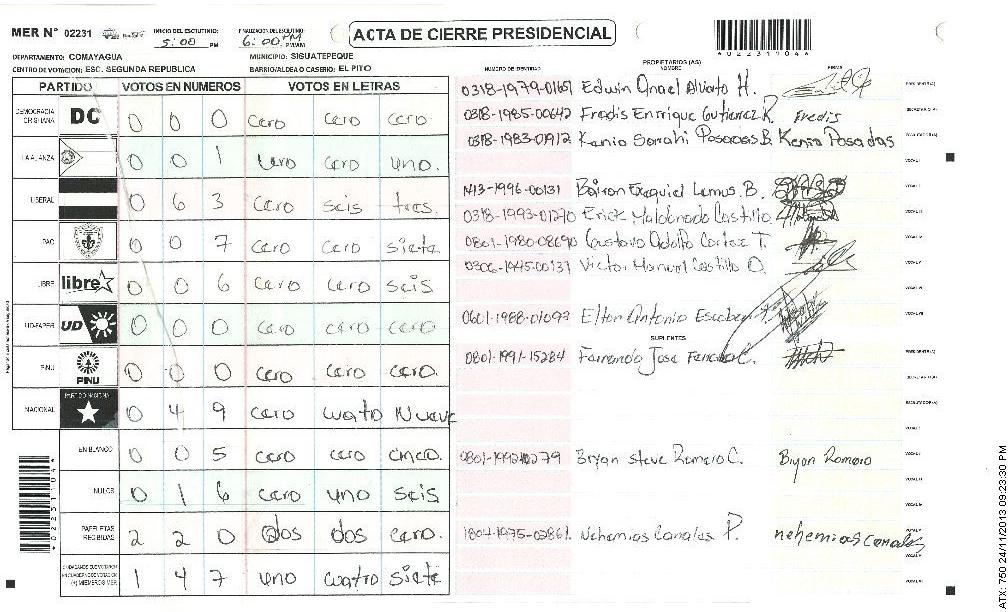 MER N° 02231 INICIO DEL ESCRUTINIO: 5:00 PM FINALIZACION DEL ESCRUTINIO: 6:00 PM PM/AM
ACTA DE CIERRE PRESIDENCIAL
*02231104*
DEPARTAMENTO: COMAYAGUA MUNICIPIO: SIGUATEPEQUE
CENTRO DE VOTACION: ESC. SEGUNDA REPUBLICA BARRIO/ALDEA O CASERIO: EL PITO
PARTIDO VOTOS EN NUMEROS VOTOS EN LETRAS
DEMOCRACIA CRISTIANA DC 0 0 0 cero cero cero
LA ALIANZA 0 0 1 cero cero uno.
LIBERAL 0 6 3 cero seis tres.
PAC 0 0 7 cero cero siete
LIBRE libre 0 0 6 cero cero seis
UD-FAPER UD 0 0 0 cero cero cero
PINU PINU 0 0 0 cero cero cero.
NACIONAL PARTIDO NACIONAL 0 4 9 cero cuatro Nueve
EN BLANCO 0 0 5 cero cero cinco.
NULOS 0 1 6 cero uno seis
PAPELETAS RECIBIDAS 2 2 0 dos dos cero.
CIUDADANOS QUE VOTARON EN CUADERNO DE VOTACION (+) MIEMBROS MER 1 4 7 uno cuatro siete
*02231104*
PROPIETARIOS (AS)
NUMERO DE IDENTIDAD NOMBRE FIRMA
Edwin H. PRESIDENTE(A)
0318-1985-00642 Fredis Enrique Gutierrez R. Fredis SECRETARIO(A)
0318-1983-01912 Kenia Sarahi Posadas B. Kenia Posadas ESCRUTADOR(A)
VOCAL I
1413-1996-00131 Bairon Exequiel Lemus. B. VOCAL II
0318-1993-01270 Erick Maldonado Castillo VOCAL III
0801-1980-08690 Gustavo Adolfo Cortez T. VOCAL IV
0306-1945-00137 Victor Manuel Castillo O. VOCAL V
VOCAL VI
0601-1988-01093 Elton Antonio Escobar VOCAL VII
SUPLENTES
0801-1991-15284 Fernando Jose C. PRESIDENTE(A)
SECRETARIO(A)
ESCRUTADOR(A)
VOCAL I
Bryan Steve Romero C. Bryan Romero
1804-1975-02861 Nehemias Canales P. nehemias canales
ATX: 750 24/11/2013 09:23:30 PM